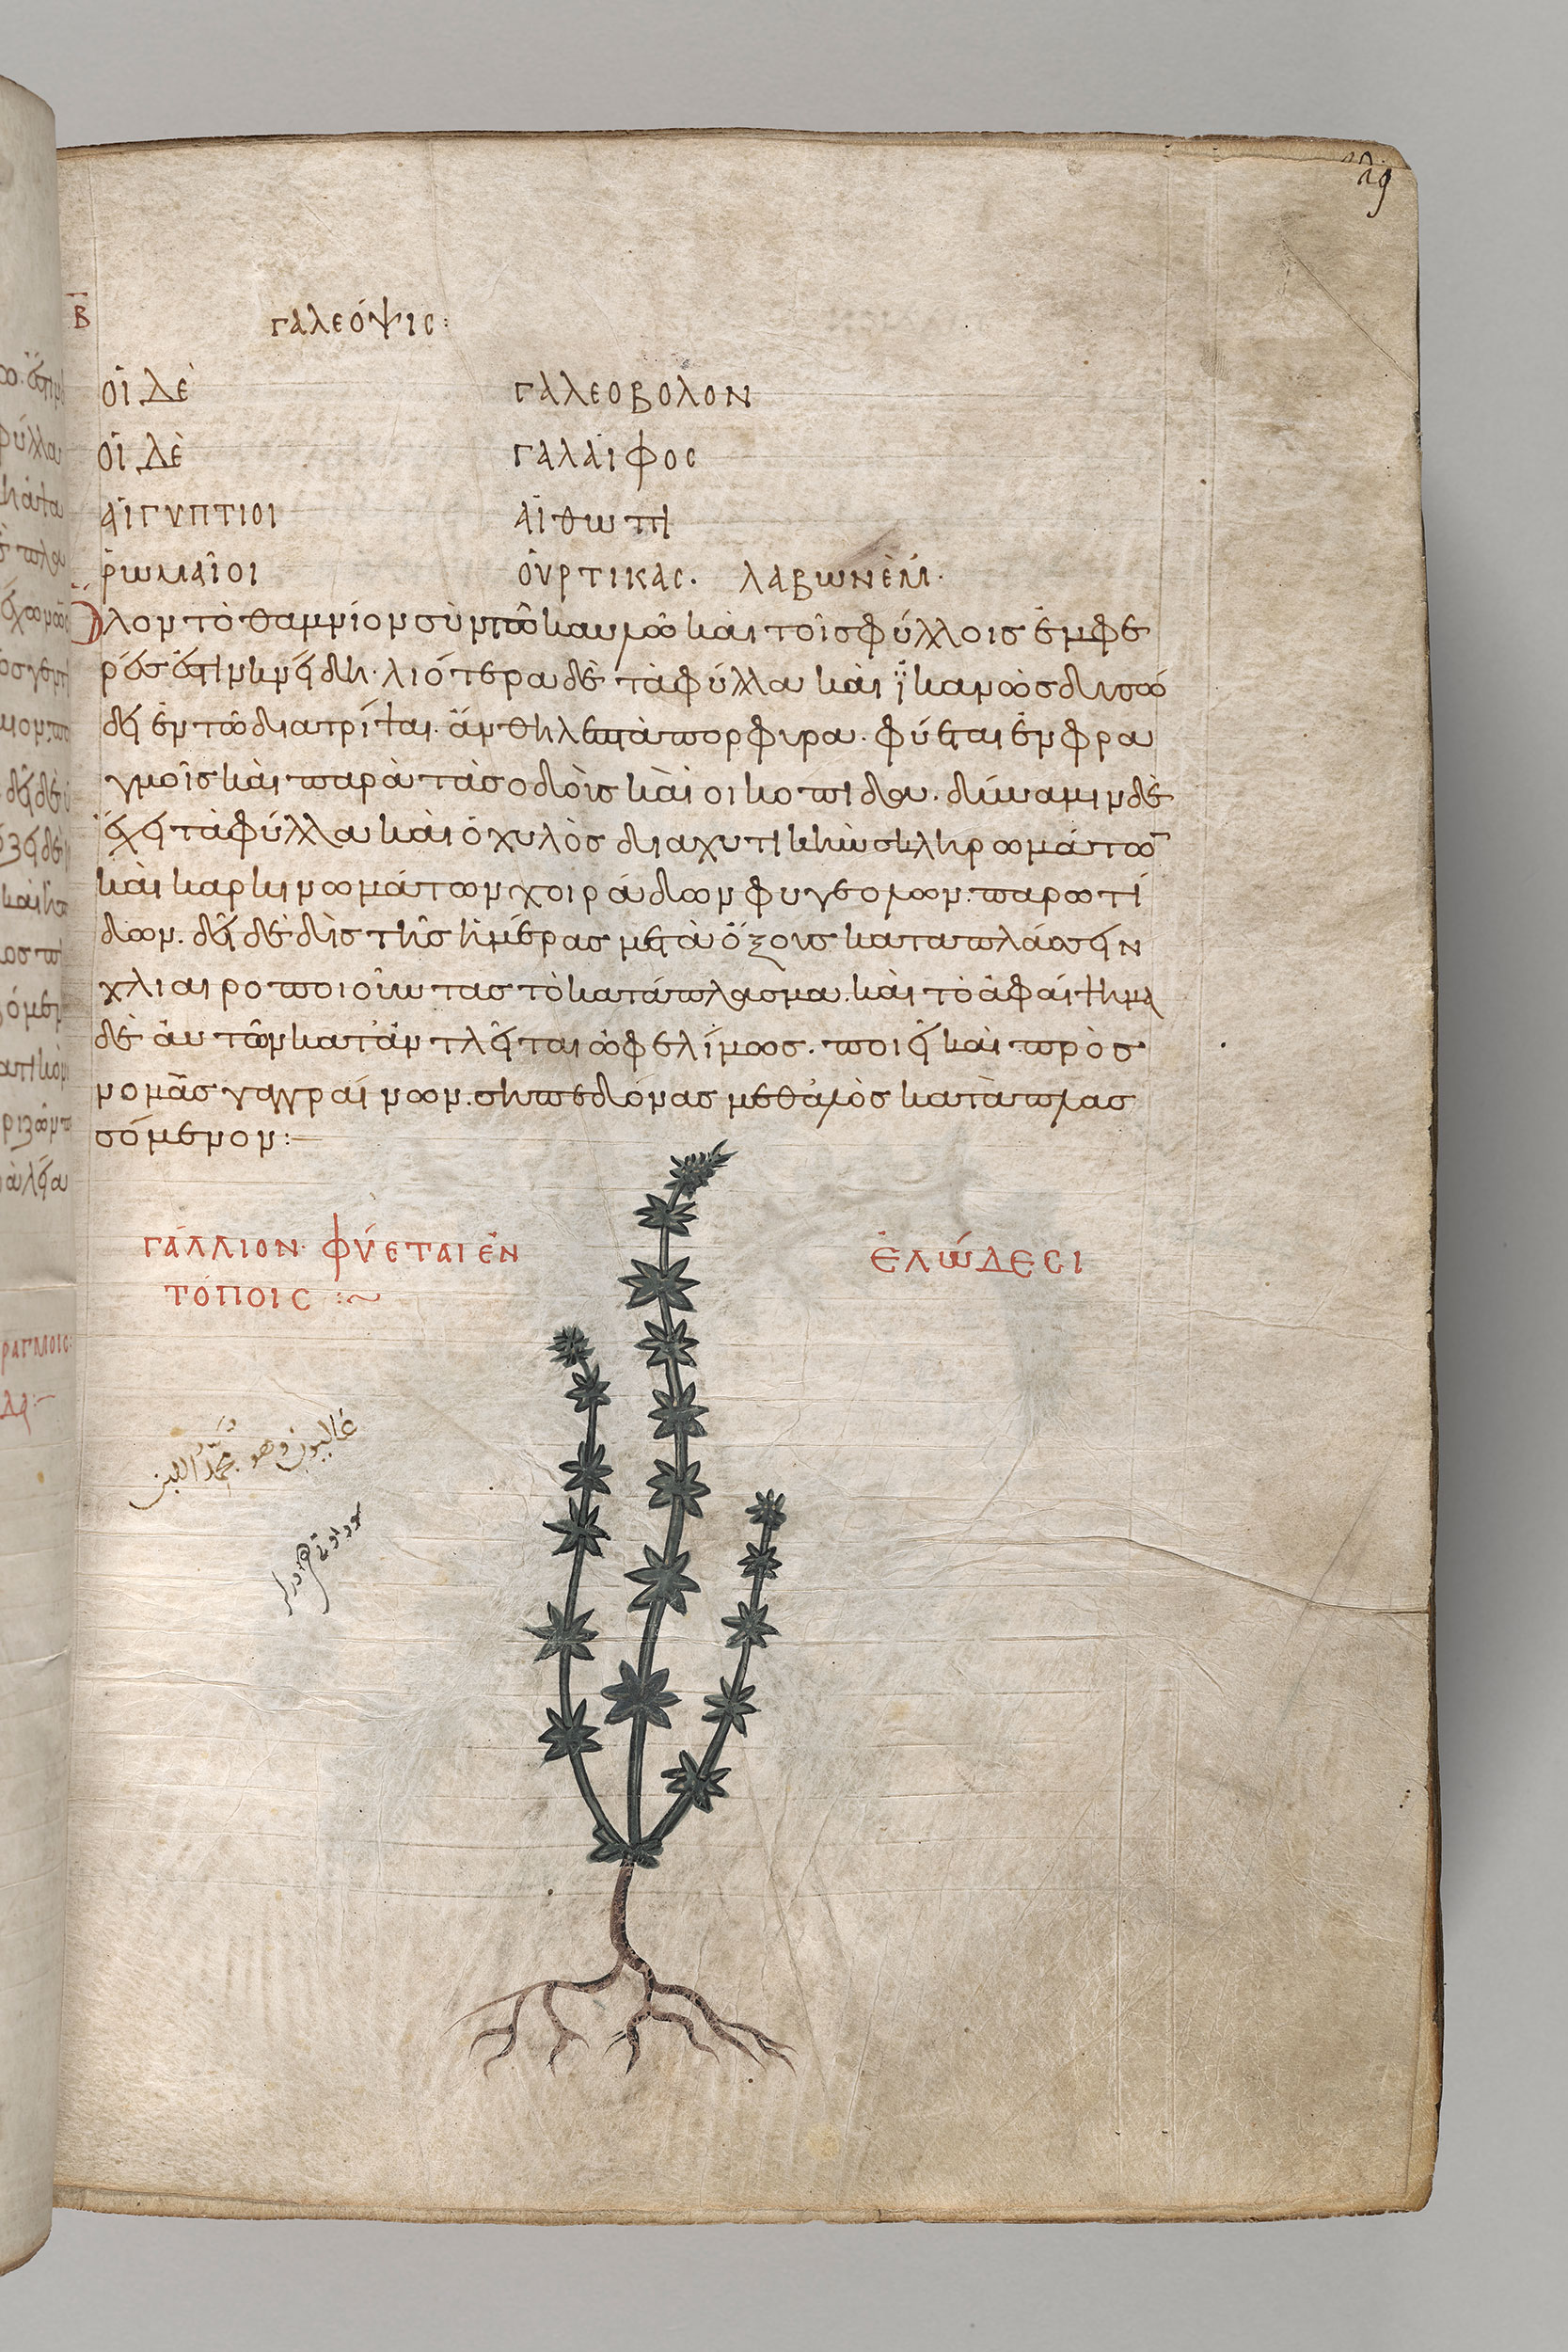 29
Β
γαλεόψις:
οἱ δὲ γαλεοβολον
οἱ δὲ γαλαιφος
αἰγύπτιοι αἰθωπι
ῥωμαῖοι οὐρτικας. λαβωνὲμ.
Ὅλον τὸ θαμνίον σὺν τῶ καυλῶ καὶ τοῖς φύλλοις ἐμφε
ρές ἐστιν κνίδη· λιότερα δὲ τὰ φύλλα καὶ ἱκανῶς δυσώ
δη ἐν τῶ διατρίβεται. ἄνθη λεπτὰ πορφυρα. φύεται ἐν φρα
γμοῖς καὶ παρὰ τὰς ὁδοὺς καὶ οικοπιδου. δύναμιν δὲ
ἔχει τὰ φύλλα καὶ ὁ χυλὸς διαχυτικὴν σκληρωμάτων
καὶ καρκινωμάτων χοιράδων φυγεθλων. παρωτί
δων. δεῖ δὲ δὶς τῆς ἡμέρας μετὰ ὄξους καταπλάσσειν
χλιαροποιοῦντας τὸ κατάπλασμα. καὶ τὸ ἀφέψημα
δὲ αὐτῶν καταντλεῖται ὠφελίμως. ποιεῖ καὶ πρὸς
νομὰς γαγγραίνων. σηπεδόνας μεθ ἁλὸς καταπλασ
σόμενον:
γάλλιον· φύεται ἐν ἑλώδεσι
τόποις :~
غاليون وهو مجمد اللبن